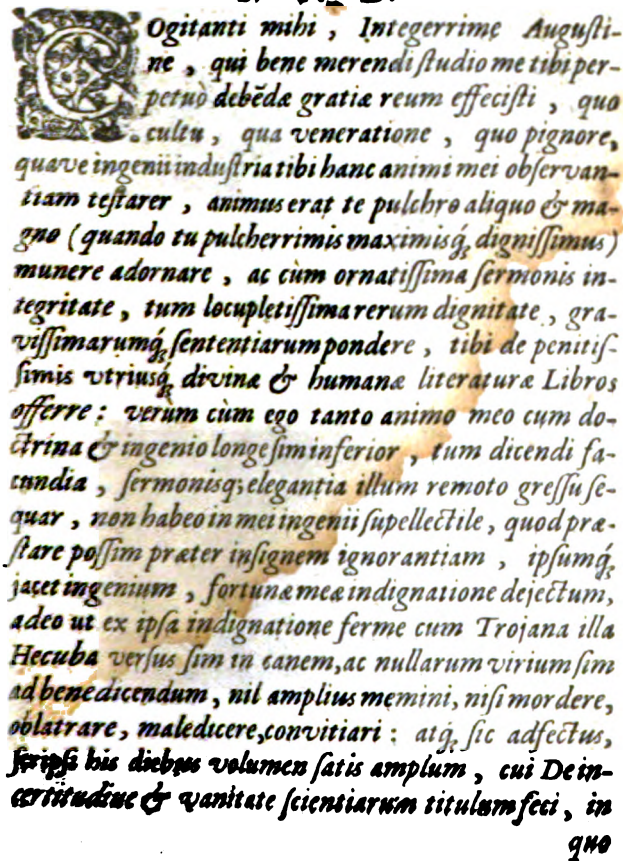 COgitanti mihi, Integerrime Augusti-
ne, qui bene merendi studio me tibi per-
petuò debēdæ gratiæ reum effecisti, quo
cultu, qua veneratione, quo pignore,
quave ingenii industria tibi hanc animi mei observan-
tiam testarer, animus erat te pulchro aliquo & ma-
gno (quando tu pulcherrimis maximisq́; dignissimus)
munere adornare, ac cùm ornatissima sermonis in-
tegritate, tum locupletissima rerum dignitate, gra-
vissimarumq́; sententiarum pondere, tibi de penitis-
simis vtriusq́; divinæ & humanæ literaturæ Libros
offerre: verum cùm ego tanto animo meo cum do-
ctrina & ingenio longe sim inferior, tum dicendi fa-
cundia, sermonisq; elegantia illum remoto gressu se-
quar, non habeo in mei ingenii supellectile, quod præ-
stare possim præter insignem ignorantiam, ipsumq́;
jacet ingenium, fortunæ meæ indignatione dejectum,
adeo ut ex ipsa indignatione ferme cum Trojana illa
Hecuba versus sim in canem, ac nullarum virium sim
ad benedicendum, nil amplius memini, nisi mordere,
oblatrare, maledicere, convitiari: atq́; sic adfectus,
scripsi his diebus volumen satis amplum, cui De in-
certitudine & vanitate scientiarum titulum feci, in
quo